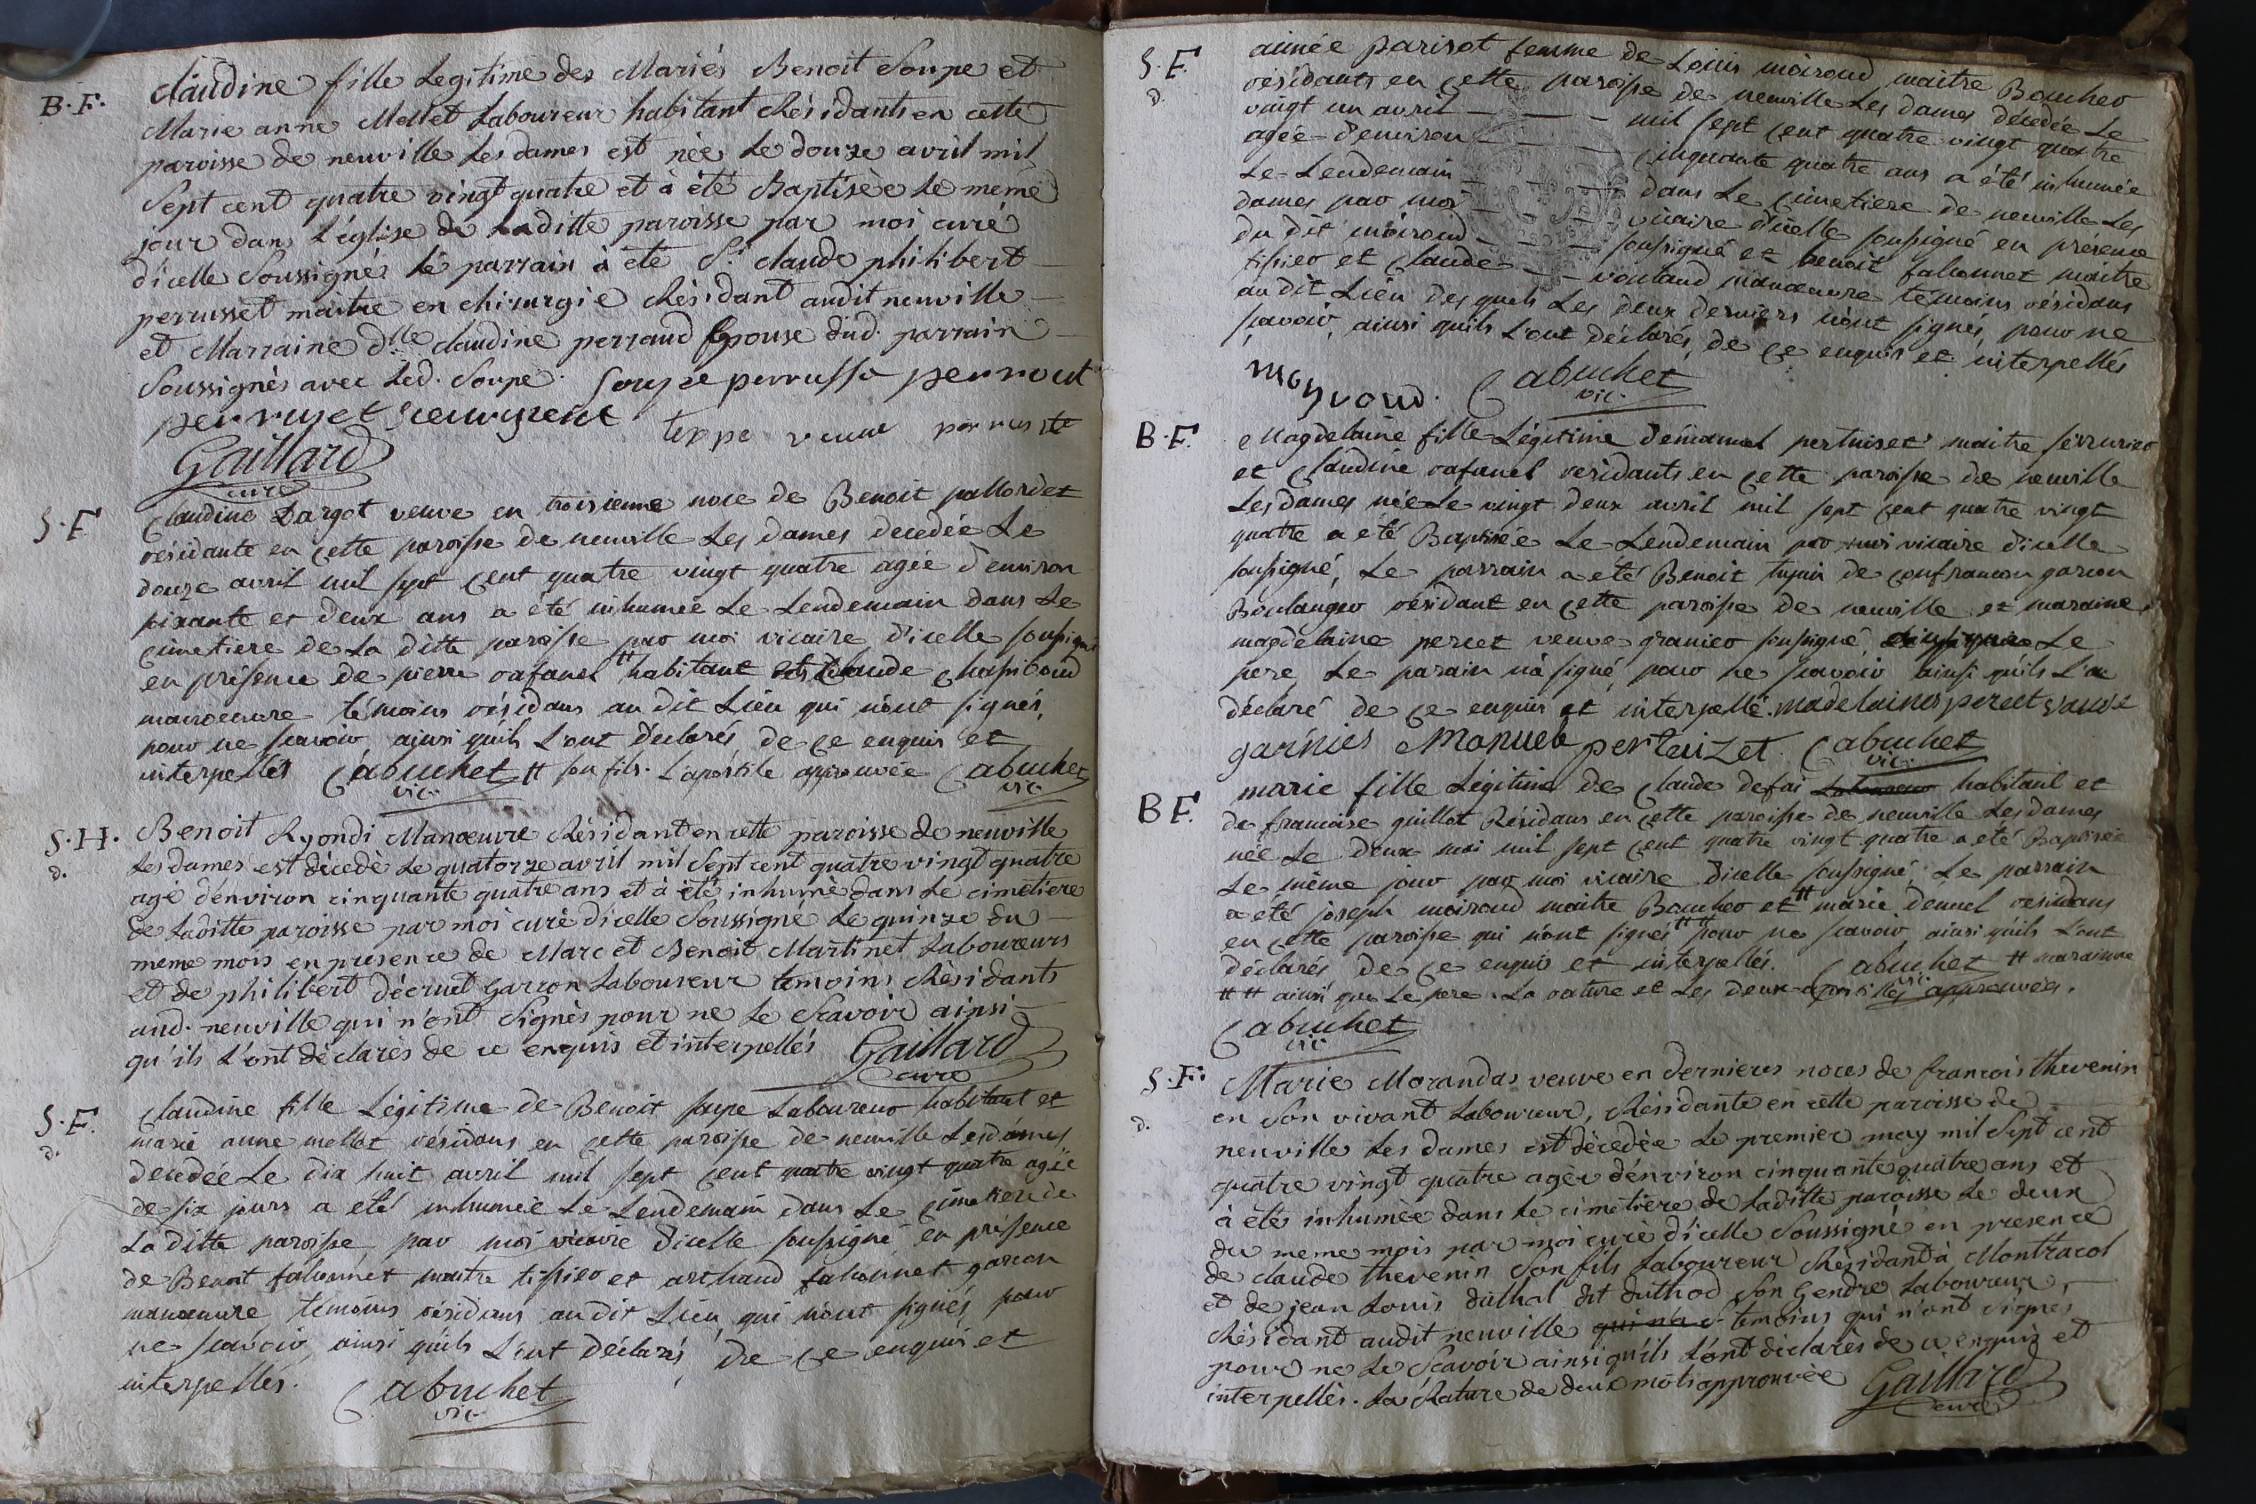 B. F.
Claudine fille Legitime des Mariés Benoit Soupe et
Marie anne Mellet Laboureur habitant Résidants en cette
paroisse de neuville Les dames est née Le douze avril mil
Sept cent quatre vingt quatre et à été Baptisèe Le meme
jour dans L'église de Laditte paroisse par moi curé
dicelle Soussigné, le parrain à eté Sr claude philibert
perrusset maitre en chirurgie Résidant audit neuville
et Marraine dlle claudine perraud Epouse dud. parrain
Soussignés avec Led. Soupe. Soupe perrusse perrout
perruset
teppe veuve perrusste
Gaillard
curé
S. F.
Claudine Dargot veuve en troisieme noce de Benoit pallordet
résidante en cette paroisse de neuville Les dames decedée Le
douze avril mil sept cent quatre vingt quatre agée d'environ
soixante et deux ans a été inhumée Le Lendemain dans Le
cimetiere de La ditte paroisse par moi vicaire d'icelle soussigné
en présence de pierre rafanel # habitant et Claude chassiboud
manoeuvre témoins résidans au dit Lieu qui n'ont signés,
pour ne scavoir, ainsi quils L'ont déclarés, de ce enquis et
interpellés Cabuchet # son fils. L'apostile approuvée Cabuchet
vic. vic.
S. H.
d.
Benoit Ryondi Manoeuvre Résidant en cette paroisse de neuville
Les dames est décedé Le quatorze avril mil Sept cent quatre vingt quatre
agé d'environ cinquante quatre ans et à été inhumé dans Le cimetiere
de Laditte paroisse par moi curé dicelle Soussigné Le quinze du
meme mois en presence de Marc et Benoit Martinet Laboureurs
et de philibert décruet Garcon Laboureur temoins Résidants
aud. neuville qui n'ont Signés pour ne Le Scavoir ainsi
qu'ils L'ont déclarés de ce enquis et interpellés Gaillard
curé
S. F.
d.
Claudine fille Légitime de Benoit soupe Laboureur habitant et
marie anne mellet résidans en cette paroisse de neuville Les dames
decedée Le dix huit avril mil sept cent quatre vingt quatre agée
de six jours a eté inhumée Le Lendemain dans Le cimetiere de
La ditte paroisse par moi vicaire d'icelle soussigné en présence
de Benoit falconnet maitre tissier et archaud falconnet garcon
manoeuvre témoins résidans au dit Lieu qui n'ont signés pour
ne scavoir, ainsi quils L'ont déclarés, de ce enquis et
interpellés. Cabuchet
vic.
S. F.
d.
aimée parisot femme de Louis moiroud maitre Boucher
résidants en cette paroisse de neuville Les dames décedée Le
vingt un avril mil sept cent quatre vingt quatre
agée d'environ cinquante quatre ans a été inhumée
Le Lendemain dans Le cimetiere de neuville Les
dames par moi vicaire d'icelle soussigné en présence
du dit moiroud soussigné et benoit falconnet maitre
tissier et Claude voutaud manoeuvre témoins résidans
au dit Lieu des quels Les deux derniers n'ont signés, pour ne
scavoir, ainsi quils L'ont déclarés, de ce enquis et interpellés
moyroud. Cabuchet
vic.
B. F.
Magdelaine fille Légitime d'émanuel pertuiset maitre serrurier
et Claudine rafanel residants en cette paroisse de neuville
Les dames née Le vingt deux avril mil sept cent quatre vingt
quatre a été Baptisée Le Lendemain par moi vicaire dicelle
soussigné, Le parrain a eté Benoit de confrancon garcon
Boulanger résidant en cette paroisse de neuville et maraine
magdelaine percet veuve granier soussigné, Le
pere, Le parain n'a signé, pour ne scavoir ainsi quils L'a
déclaré de ce enquis et interpellé. madelaines percet
garnies Manuel perteuizet. Cabuchet
vic.
B F.
marie fille Légitime de Claude defai Laboureur habitant et
de francoise guillot Résidans en cette paroisse de neuville Les dames
née Le deux mai mil sept cent quatre vingt quatre a eté Baptisée
Le même jour par moi vicaire dicelle soussigné; Le parrain
a eté joseph moiroud maitre Boucher et # marie deunel residans
en cette paroisse qui n'ont signés ## pour ne scavoir, ainsi quils L'ont
déclarés de ce enquis et interpellés. Cabuchet # marainne
vic.
## ainsi que Le pere. La rature et Les deux apostilles approuvées.
Cabuchet
vic.
S. F.
d.
Marie Morandas veuve en dernieres noces de francois thevenin
en Son vivant Laboureur, Résidante en cette paroisse de
neuville Les dames est décedée Le premier may mil Sept cent
quatre vingt quatre agée d'environ cinquante quatre ans et
à été inhumée dans Le cimetiere de Laditte paroisse Le deux
du meme mois par moi curé d'icelle Soussigné en presence
de claude thevenin Son fils Laboureur Résidant à Montracol
et de jean Louis duthal dit duthod Son Gendre Laboureur,
Résidant audit neuville qui n'a S temoins qui n'ont Signés
pour ne Le Scavoir ainsi qu'ils L'ont déclarés de ce enquis et
interpellés. La Rature de deux mots approuvée Gaillard
curé